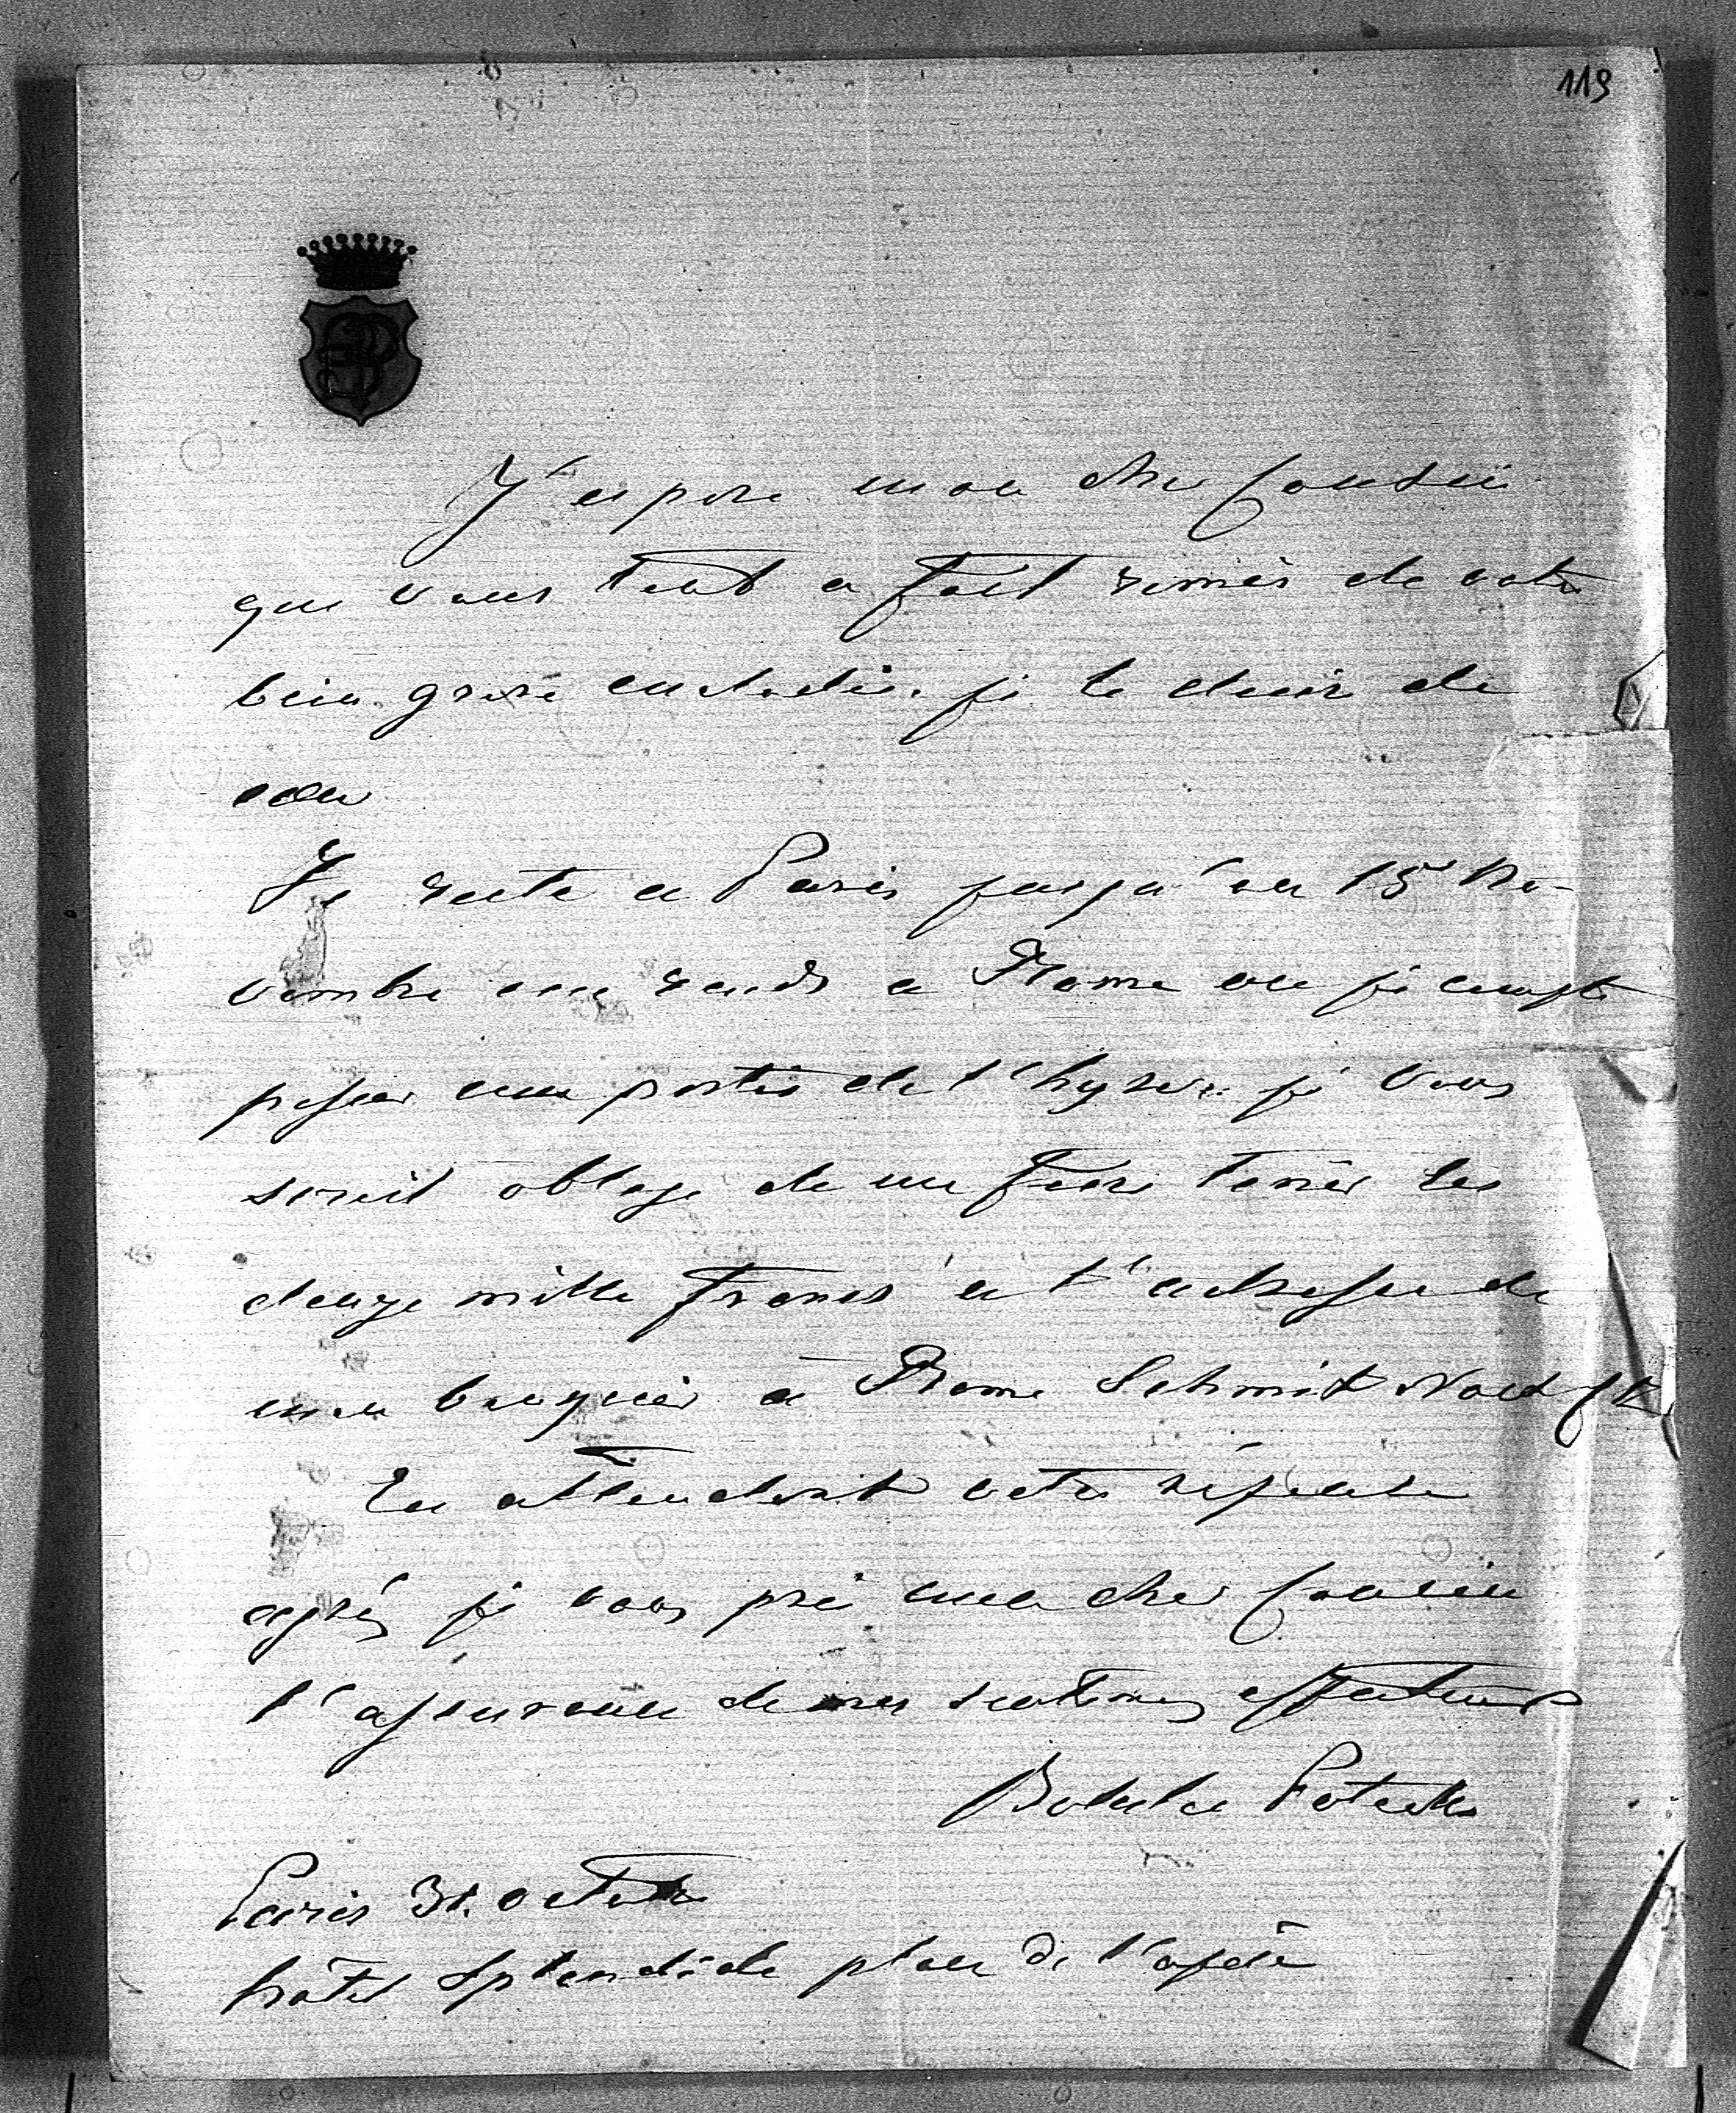 119
J'espere mon cher Cousin
que vous tout a fait remis de votre
bien grave maladie. je le desire de
coeur
Je reste a Paris jusqu'au 15 No-
vembre me rends a Rome ou je compte
passer une partie de l'hyver. je vous
serait oblige de me faire tenir les
douze mille francs a l'adresse de
mon banquier a Rome Schmitt
En attendant votre réponse
agréez je vous prie mon cher Cousin
l'assurance de mes sentimens affectueux
Boleslas Potocki
Paris 31. octobre
hôtel Splendide place de l'opéra